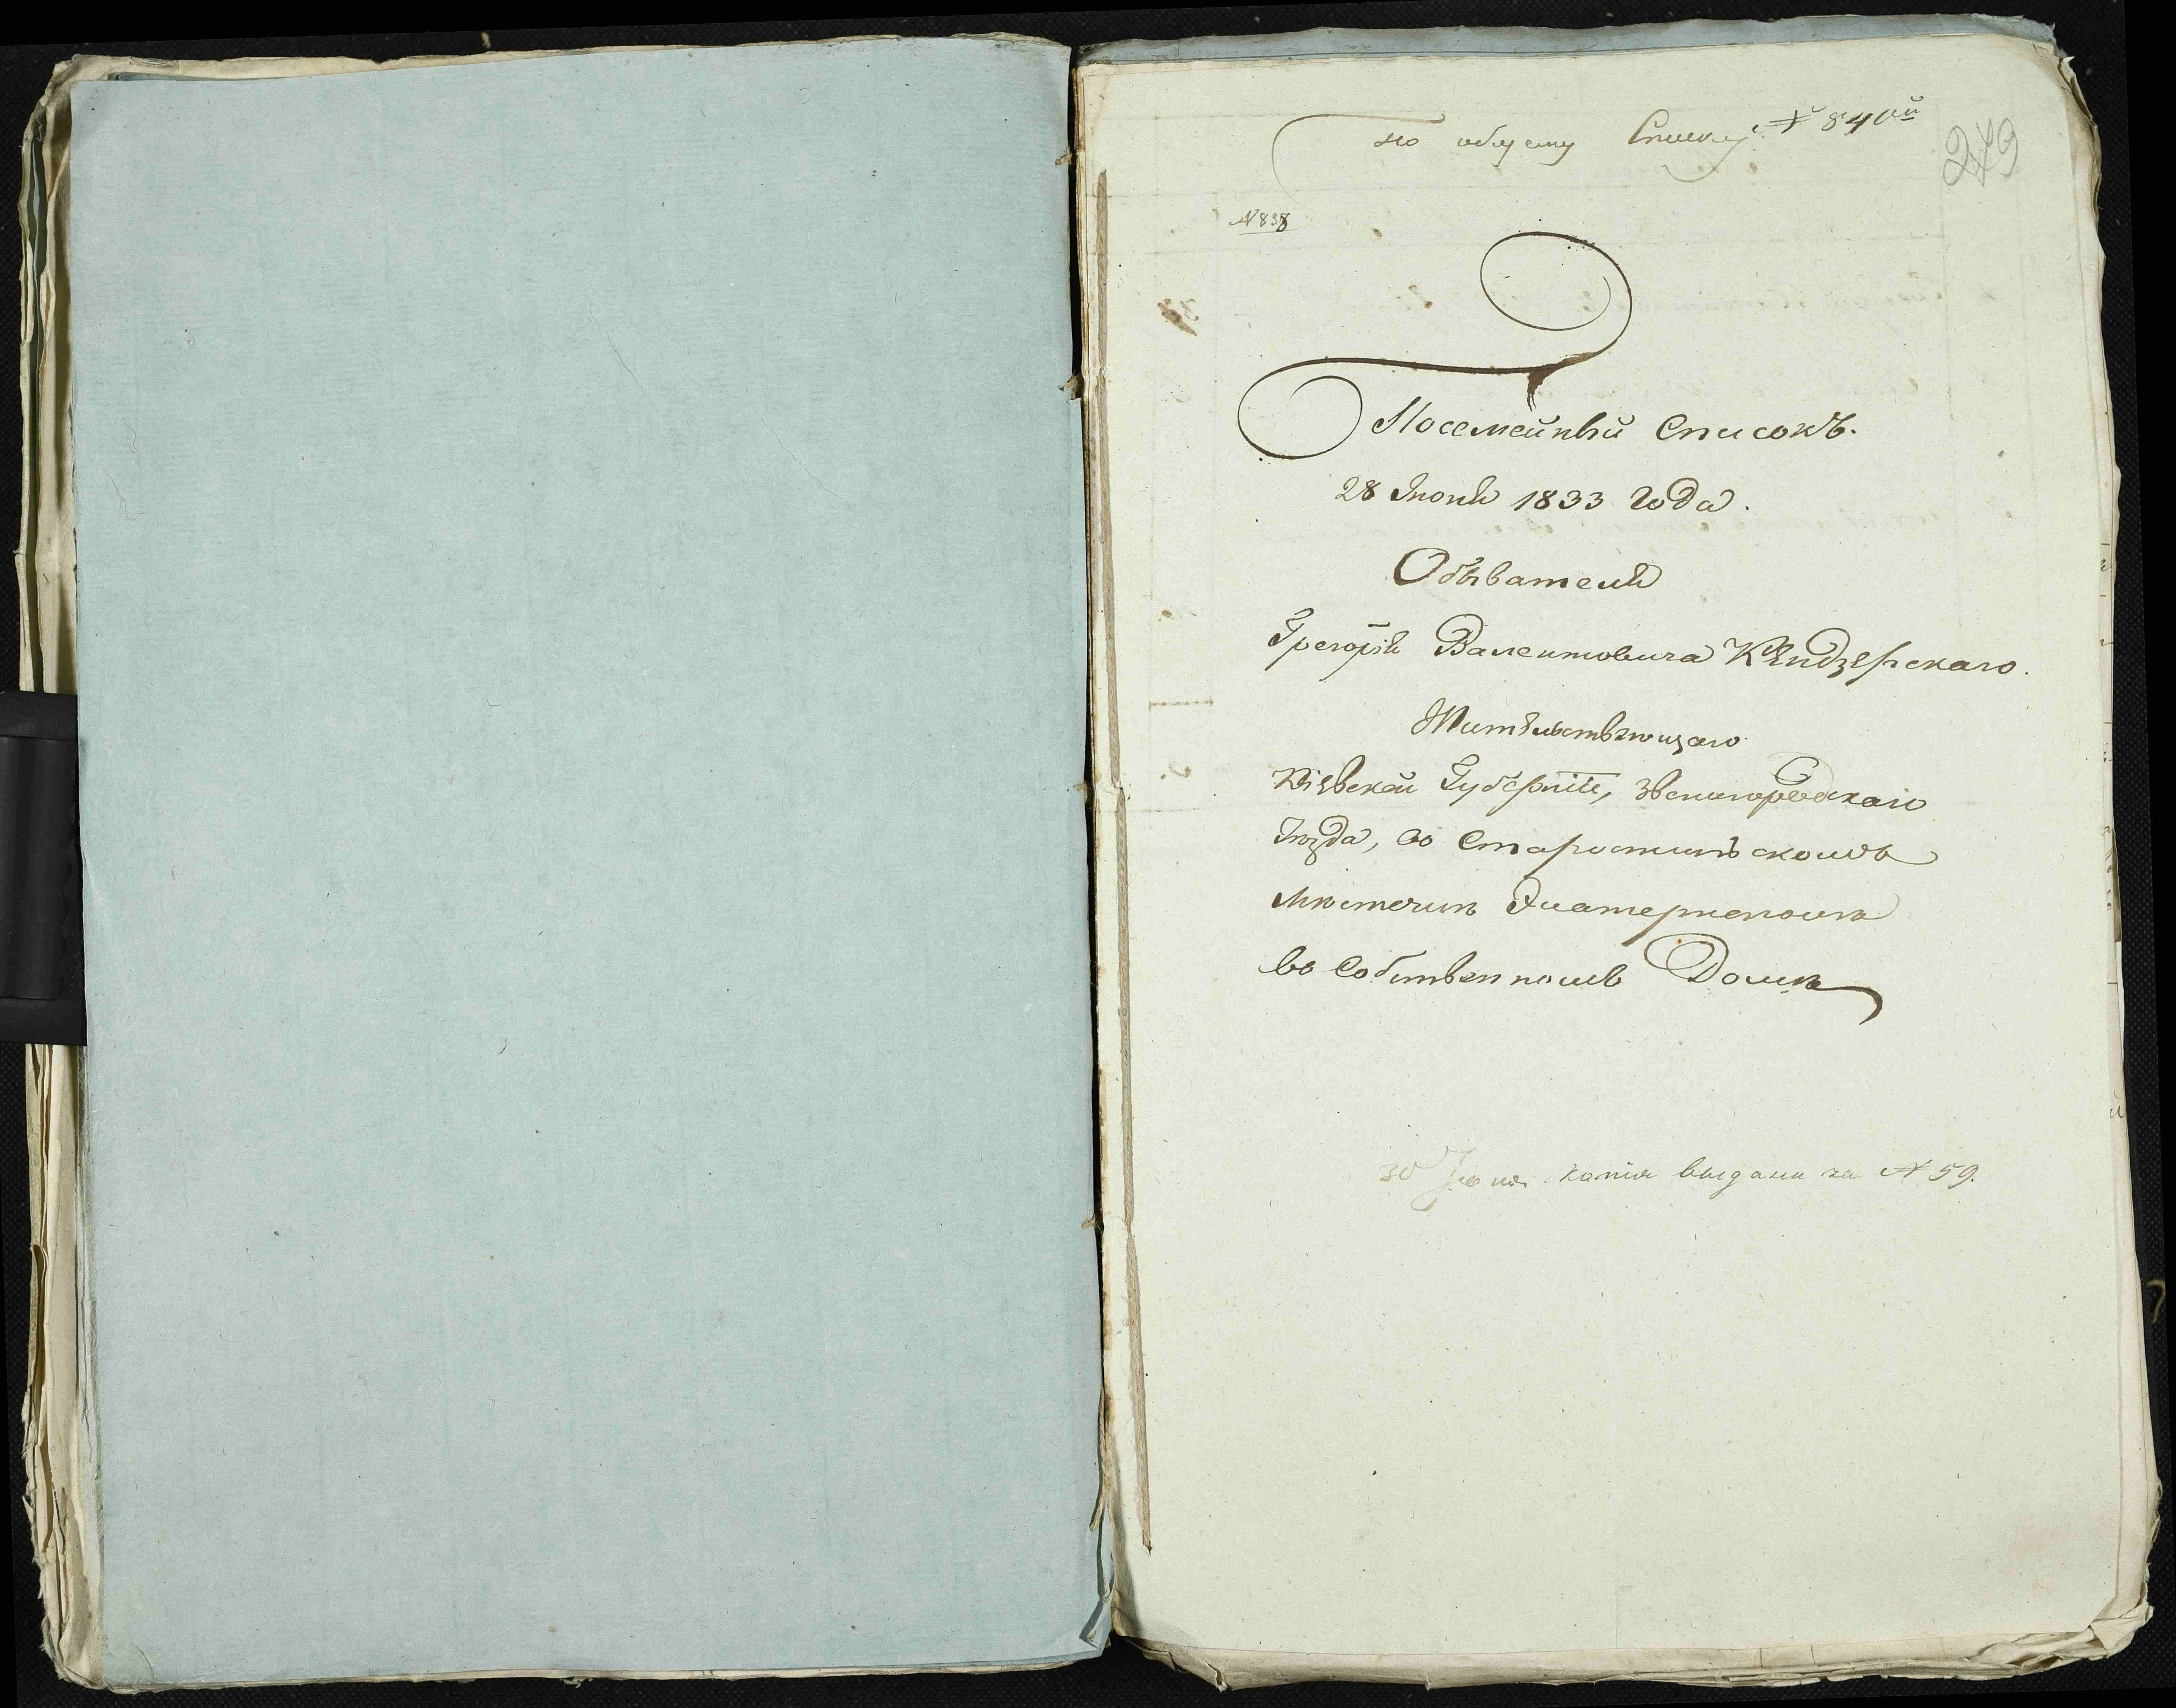 по общему Списку № 840й
279
№ 838
Посемейный Списокъ.
28 Июня 1833 года.
Обывателя
Грегорія Валентовича Кендзерскаго.
Жительствующаго
Кіевской Губерніи, Звенигородскаго
Уезда, во Старостинскомъ
Местечкѣ Екатеринополѣ
во Собственномъ Домѣ
30 Июня копія выдана за № 59.